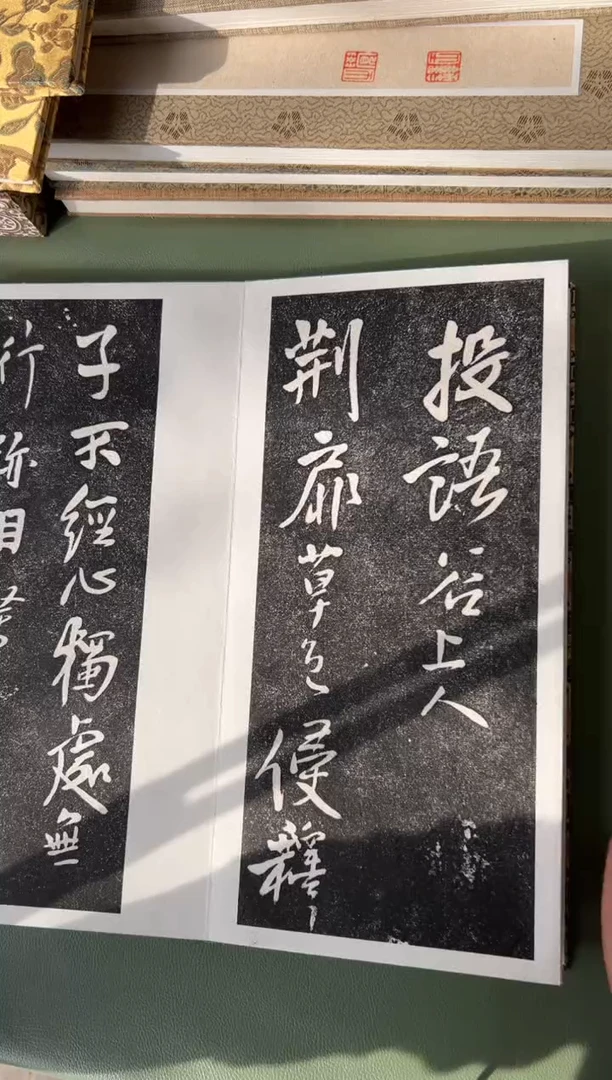 投語谷上人
荆扉草色侵釋
子不經心獨處無
行